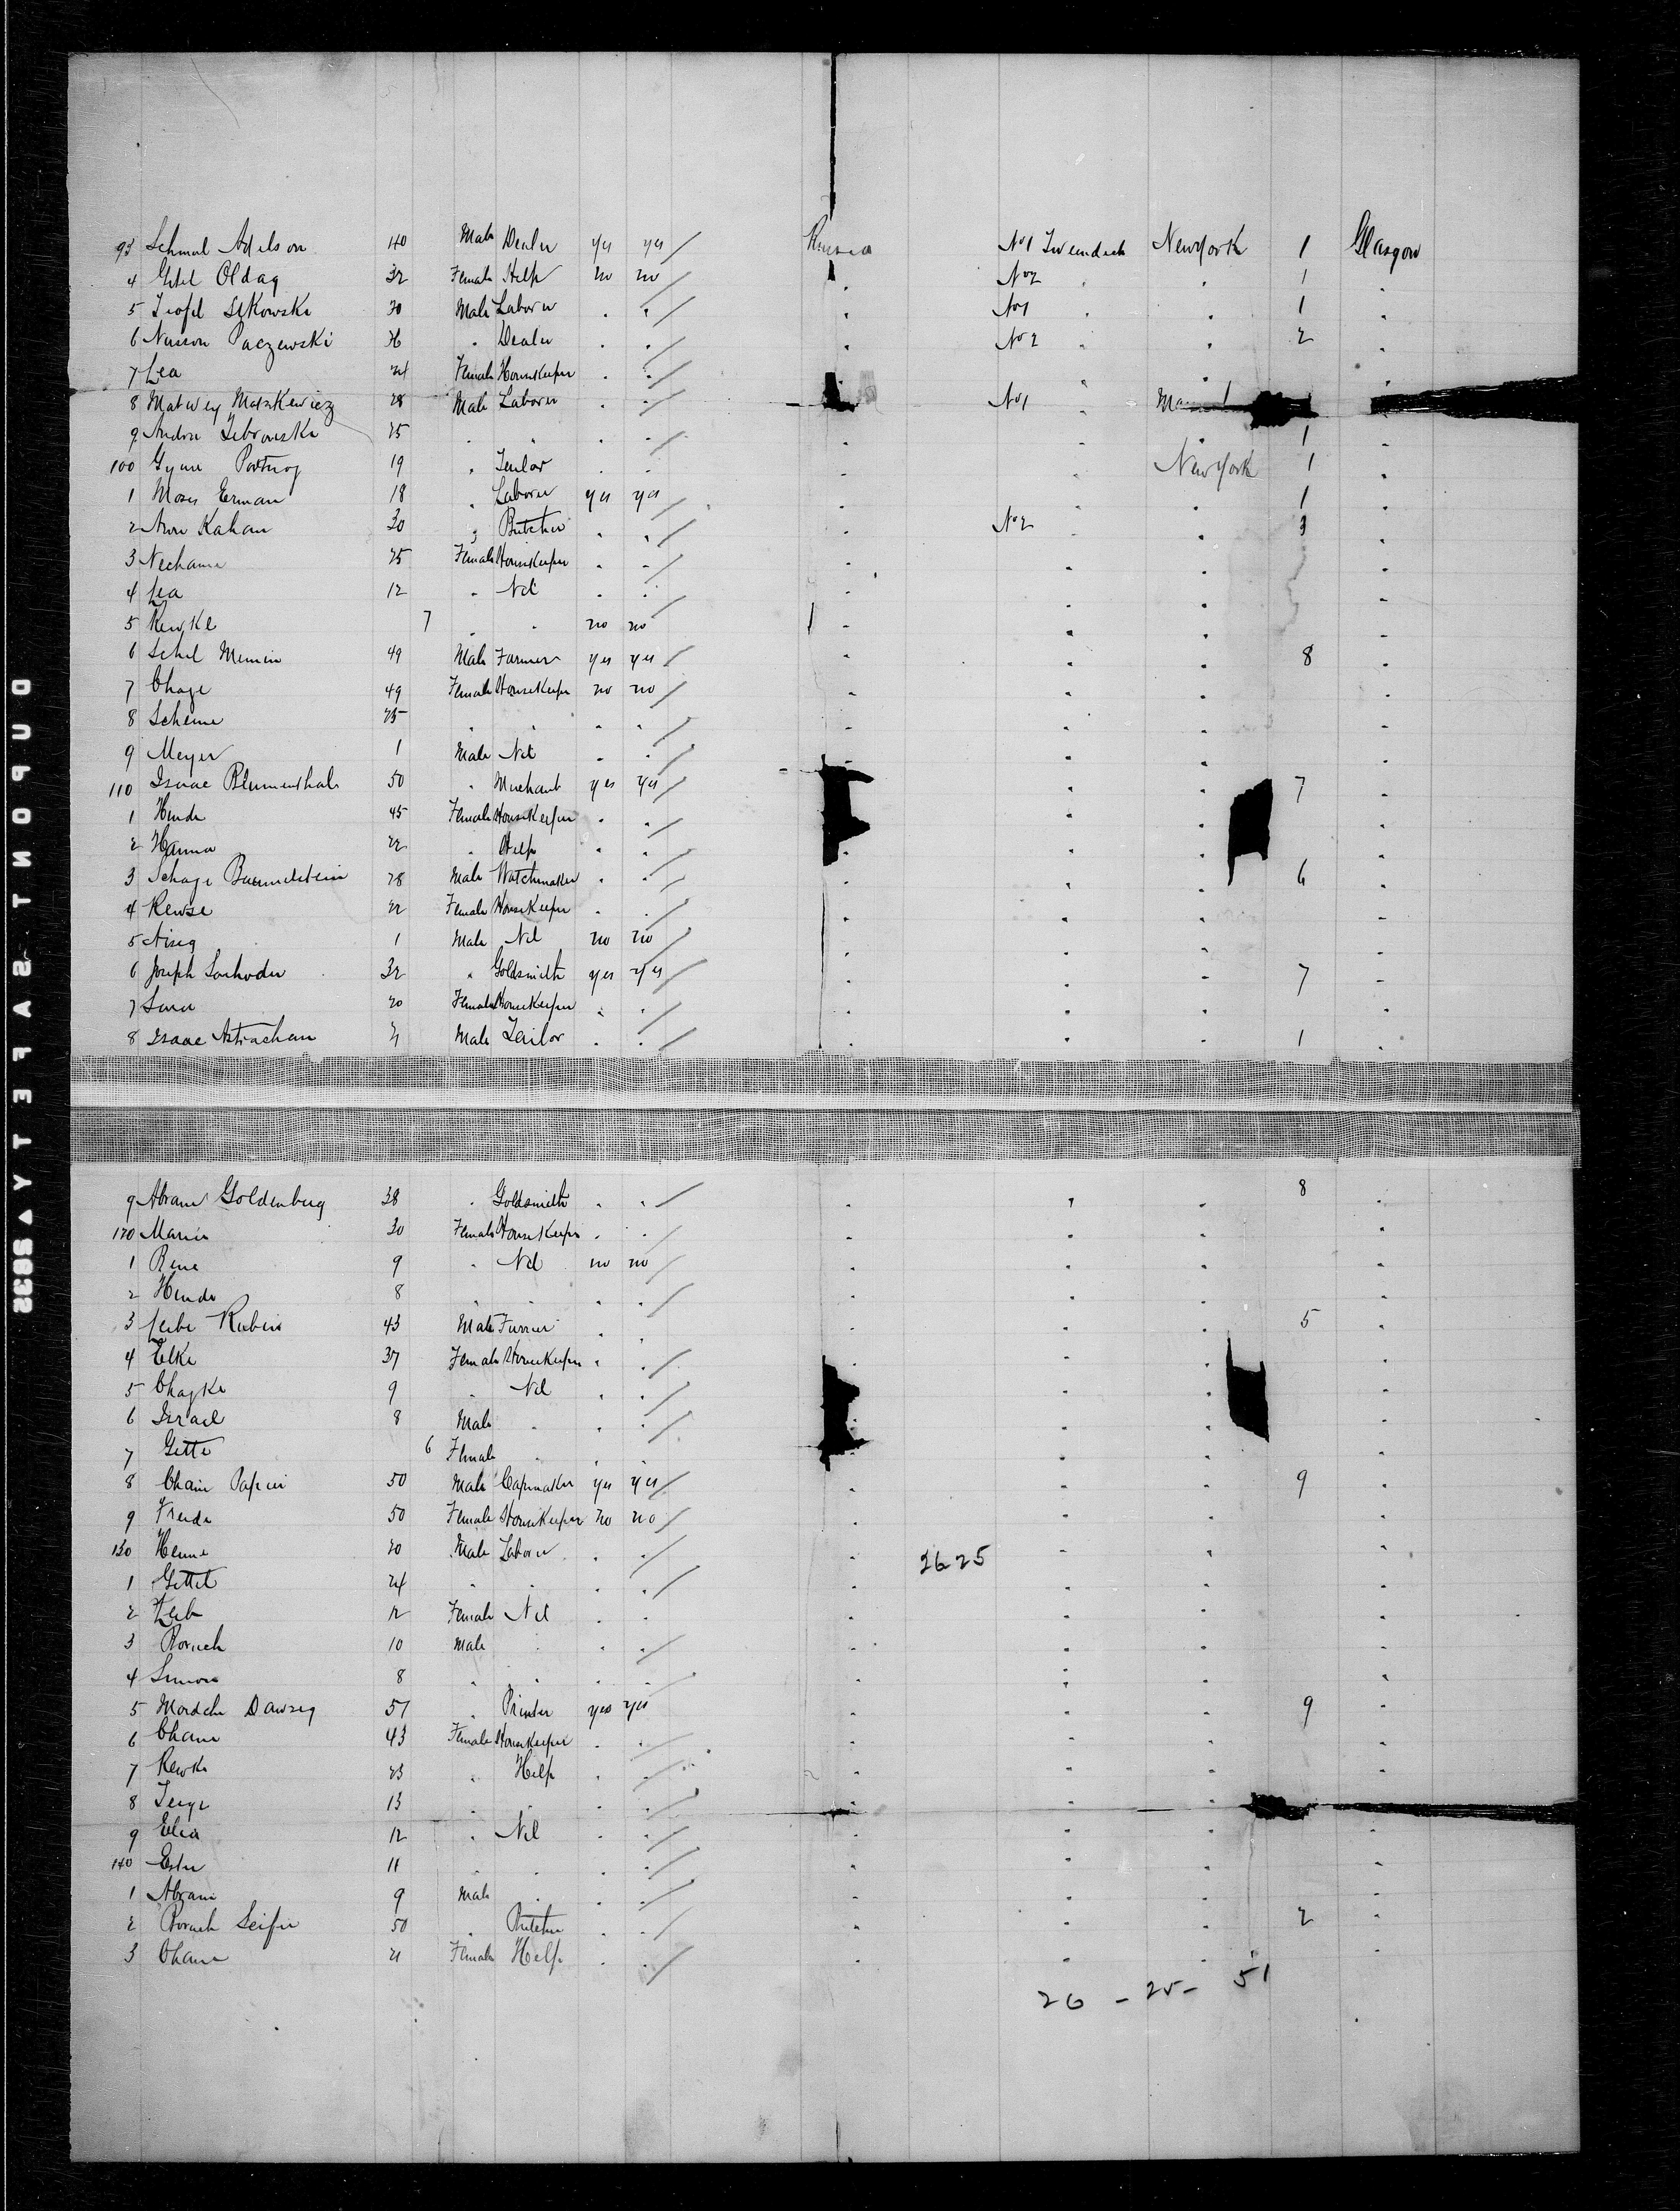 93 Schmul Adelson 40 Male Dealer yes yes / Russia No1 Tweendeck NewYork 1 Glasgow
4 Gitel Oldag 32 Female Help no no / . No2 . . 1 .
5 30 Male Laborer . . / . No1 . . 1 .
6 Nusson Paczewski 36 . Dealer . . / . No2 . . 2 .
7 Lea 24 Female Housekeeper . . / . . . .
8 Matwey Matzkewicz 28 Male Laborer . . / . No1 . 1
9 Andre Zebrowski 25 . . . . / . . 1 .
100 Portnoy 19 . Tailor . . . . NewYork 1 .
1 Moses Erman 18 . Laborer yes yes / . . . 1 .
2 Kahan 30 " Butcher . . / . No2 . . 3 .
3 Nechame 25 Female Housekeeper . . / . . . .
4 Lea 12 . Nil . . / . . . .
5 Rewke 7 . . no no . . . .
6 49 Male Farmer yes yes / . . . 8 .
7 Chaze 49 Female Housekeeper no no / . . . .
8 Scheine 25 . . . . / . . . .
9 Meyer 1 Male Nil . . / . . . .
110 Isaac Blumenthal 50 . Merchant yes yes / . . 7 .
1 Hinde 45 Female Housekeeper . . / . . .
2 Hanna 22 . Help . . / . . . .
3 28 Male Watchmaker . . / . . . 6 .
4 Rewse 22 Female Housekeeper . . / . . . .
5 1 Male Nil no no / . . . .
6 Joseph 32 . Goldsmith yes yes / . . . 7 .
7 Sara 20 Female Housekeeper . . / . . . .
8 Isaac Astrachan 21 Male Tailor . . / . . . 1 .
9 Abram Goldenberg 38 . Goldsmith . . / . . . 8 .
120 Marie 30 Female Housekeeper . . / . . . .
1 9 . Nil no no / . . . .
2 Hinde 8 . . . . / . . . .
3 Leibe Rubin 43 Male Furrier . . . . . 5 .
4 Elke 37 Female Housekeeper . . / . . .
5 Chazke 9 . Nil . . / . . .
6 Israel 8 Male . . . / . . .
7 Gitte 6 Female . . . . . . .
8 Chaim Papier 50 Male Capmaker yes yes / . . . 9 .
9 Freide 50 Female Housekeeper no no / . . . .
130 20 Male Laborer . . / . 26 25 . . .
1 24 . . . . / . . . .
2 Leib 12 Female Nil . . . . . .
3 Boruch 10 Male . . . / . . . .
4 Simon 8 . . . . / . . . .
5 Mordche 51 . Printer yes yes . . . 9 .
6 Chane 43 Female Housekeeper . . / . . . .
7 Rewke 23 . Help . . / . . . .
8 13 . . . . / . . .
9 12 . Nil . . / . . . .
140 Ester 11 . . . . / . . . .
1 Abram 9 Male . . . / . . . .
2 Boruch 50 . Butcher . . / . . . 2 .
3 Chane 21 Female Help . . / . . . .
26 - 25 - 51
DUPONT SAFETY